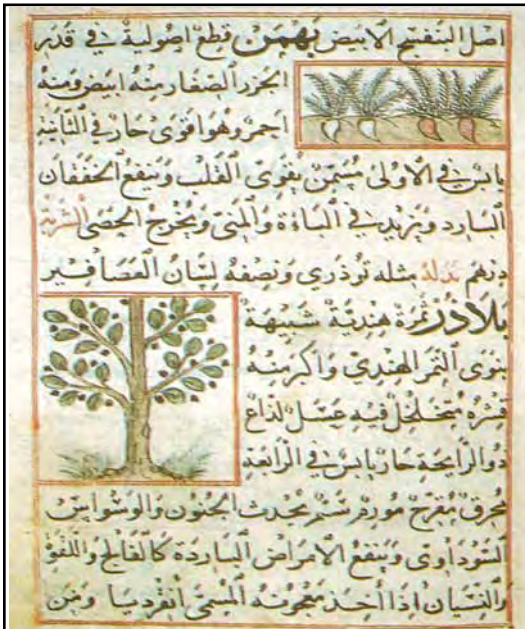 اصل البنفسج الابيض بهمن قطع اصولية في قدر
الجزر الصغار منه ابيض ومنه
احمر وهو اقوى حار في الثانية
يابس في الاولى مسمن يقوى القلب وينفع الخفقان
البارد ويزيد في الباءة والمنى ويخرج الحصى الشربة
درهم بدله مثله توذري ونصفه لسان العصافير
بلاذر ثمرة هندية شبيهة
بنوى التمر الهندي واكبر منه
قشره متخلخل فيه عسل لذاع
ذو الرايحة حار يابس في الرابعة
محرق مقرح مورم سم يحدث الجنون والوسواس
السوداوى وينفع الامراض الباردة كالفالج واللقوة
والنسيان اذا اخذ معجونه المسمى انقرديا ومن